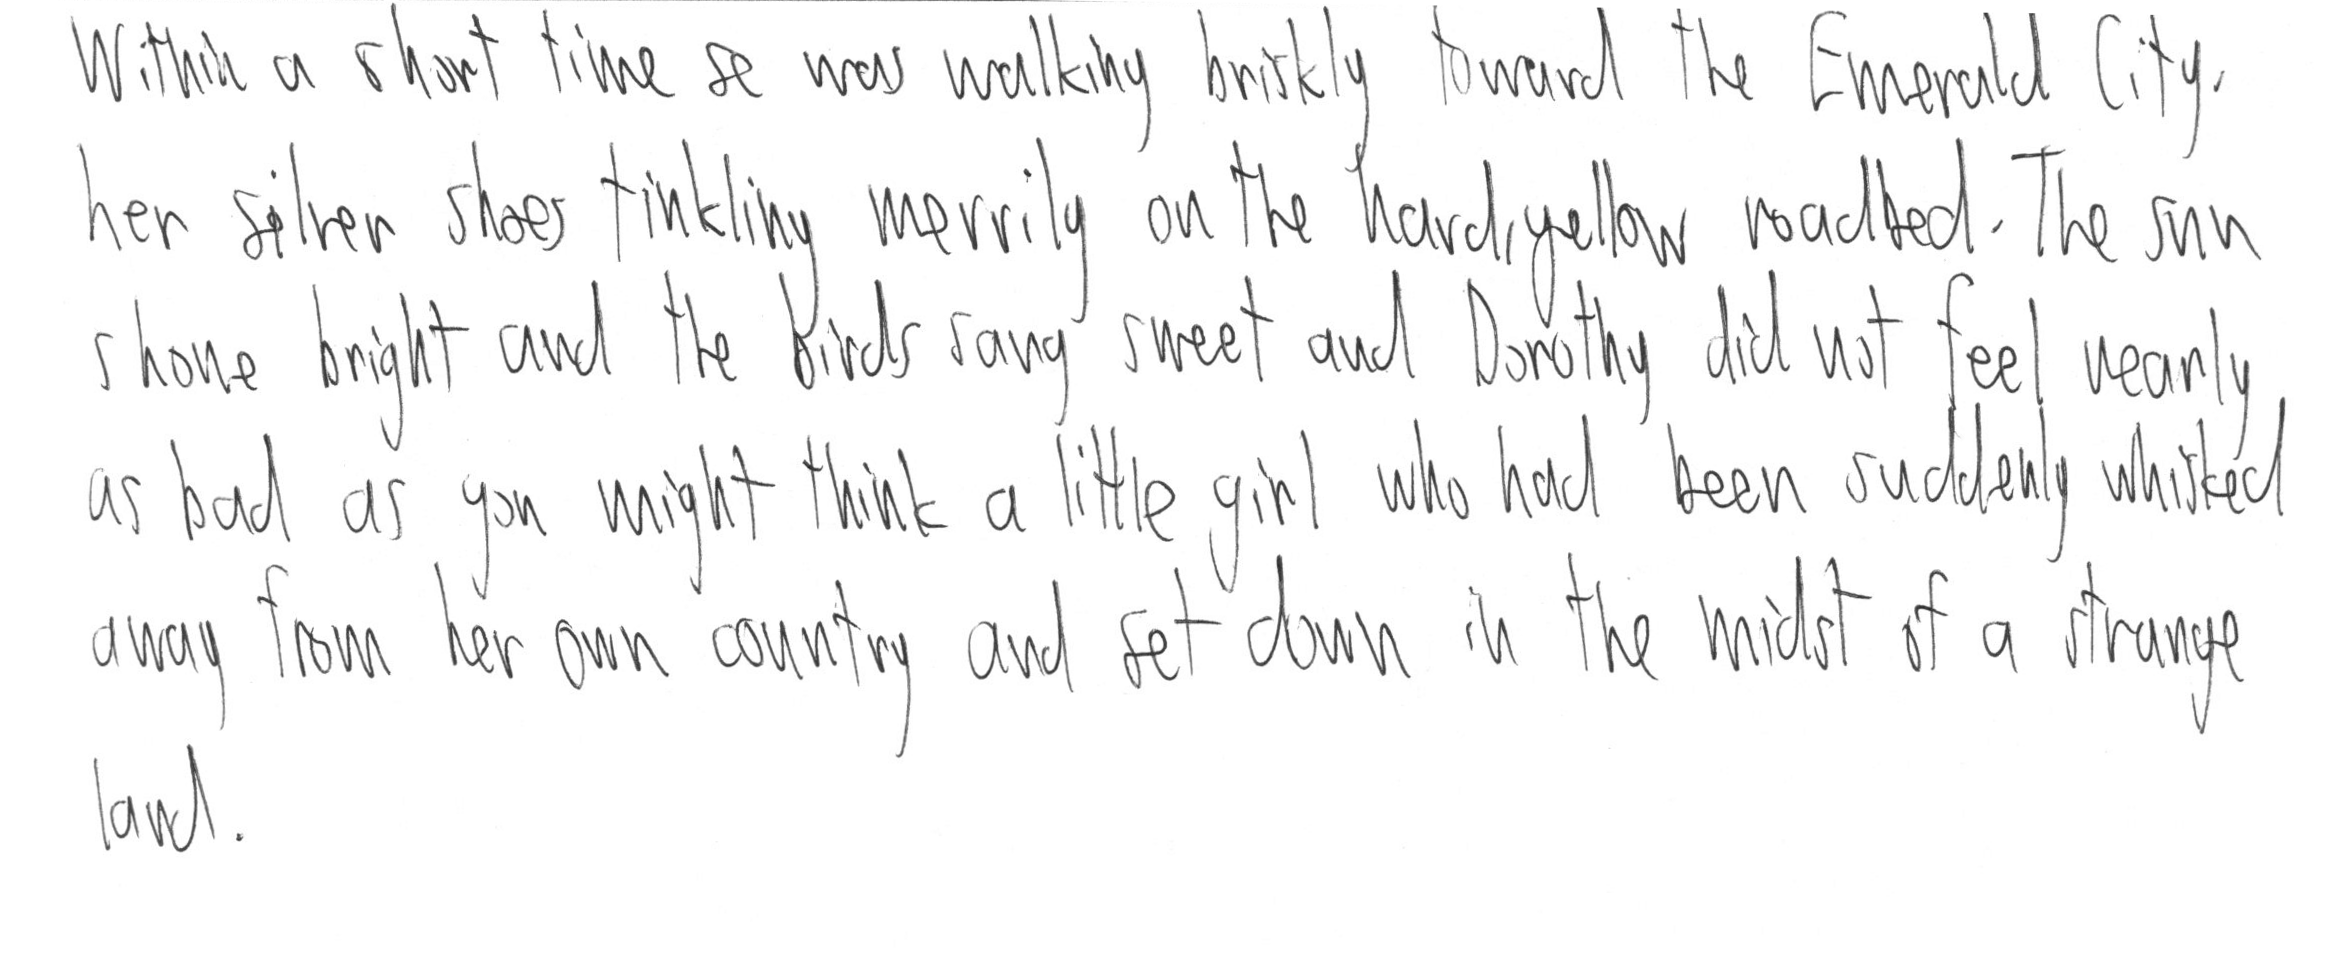 Within a short time se was walking briskly toward the Emerald City,
her silver shoes tinkling merrily on the hard, yellow roadbed. The sun
shone bright and the birds sang sweet and Dorothy did not feel nearly
as bad as you might think a little girl who had been suddenly whisked
away from her own country and set down in the midst of a strange
land.